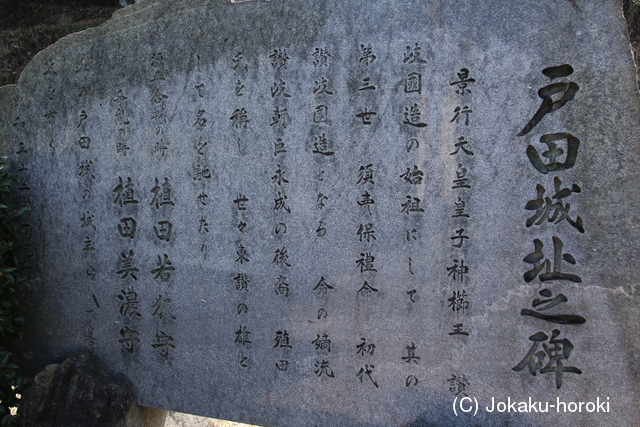 戸田城址之碑
景行天皇皇子神櫛王 讃
岐國造の始祖にして 其の
第三世 須責保禮命 初代
讃岐國造となる 命の嫡流
讃岐朝臣永成の後裔 殖田
氏を稱し 世々東讃の雄と
して名を馳せたり
植田若狭守
植田美濃守
戸田城の城主
(C) Jokaku-horoki